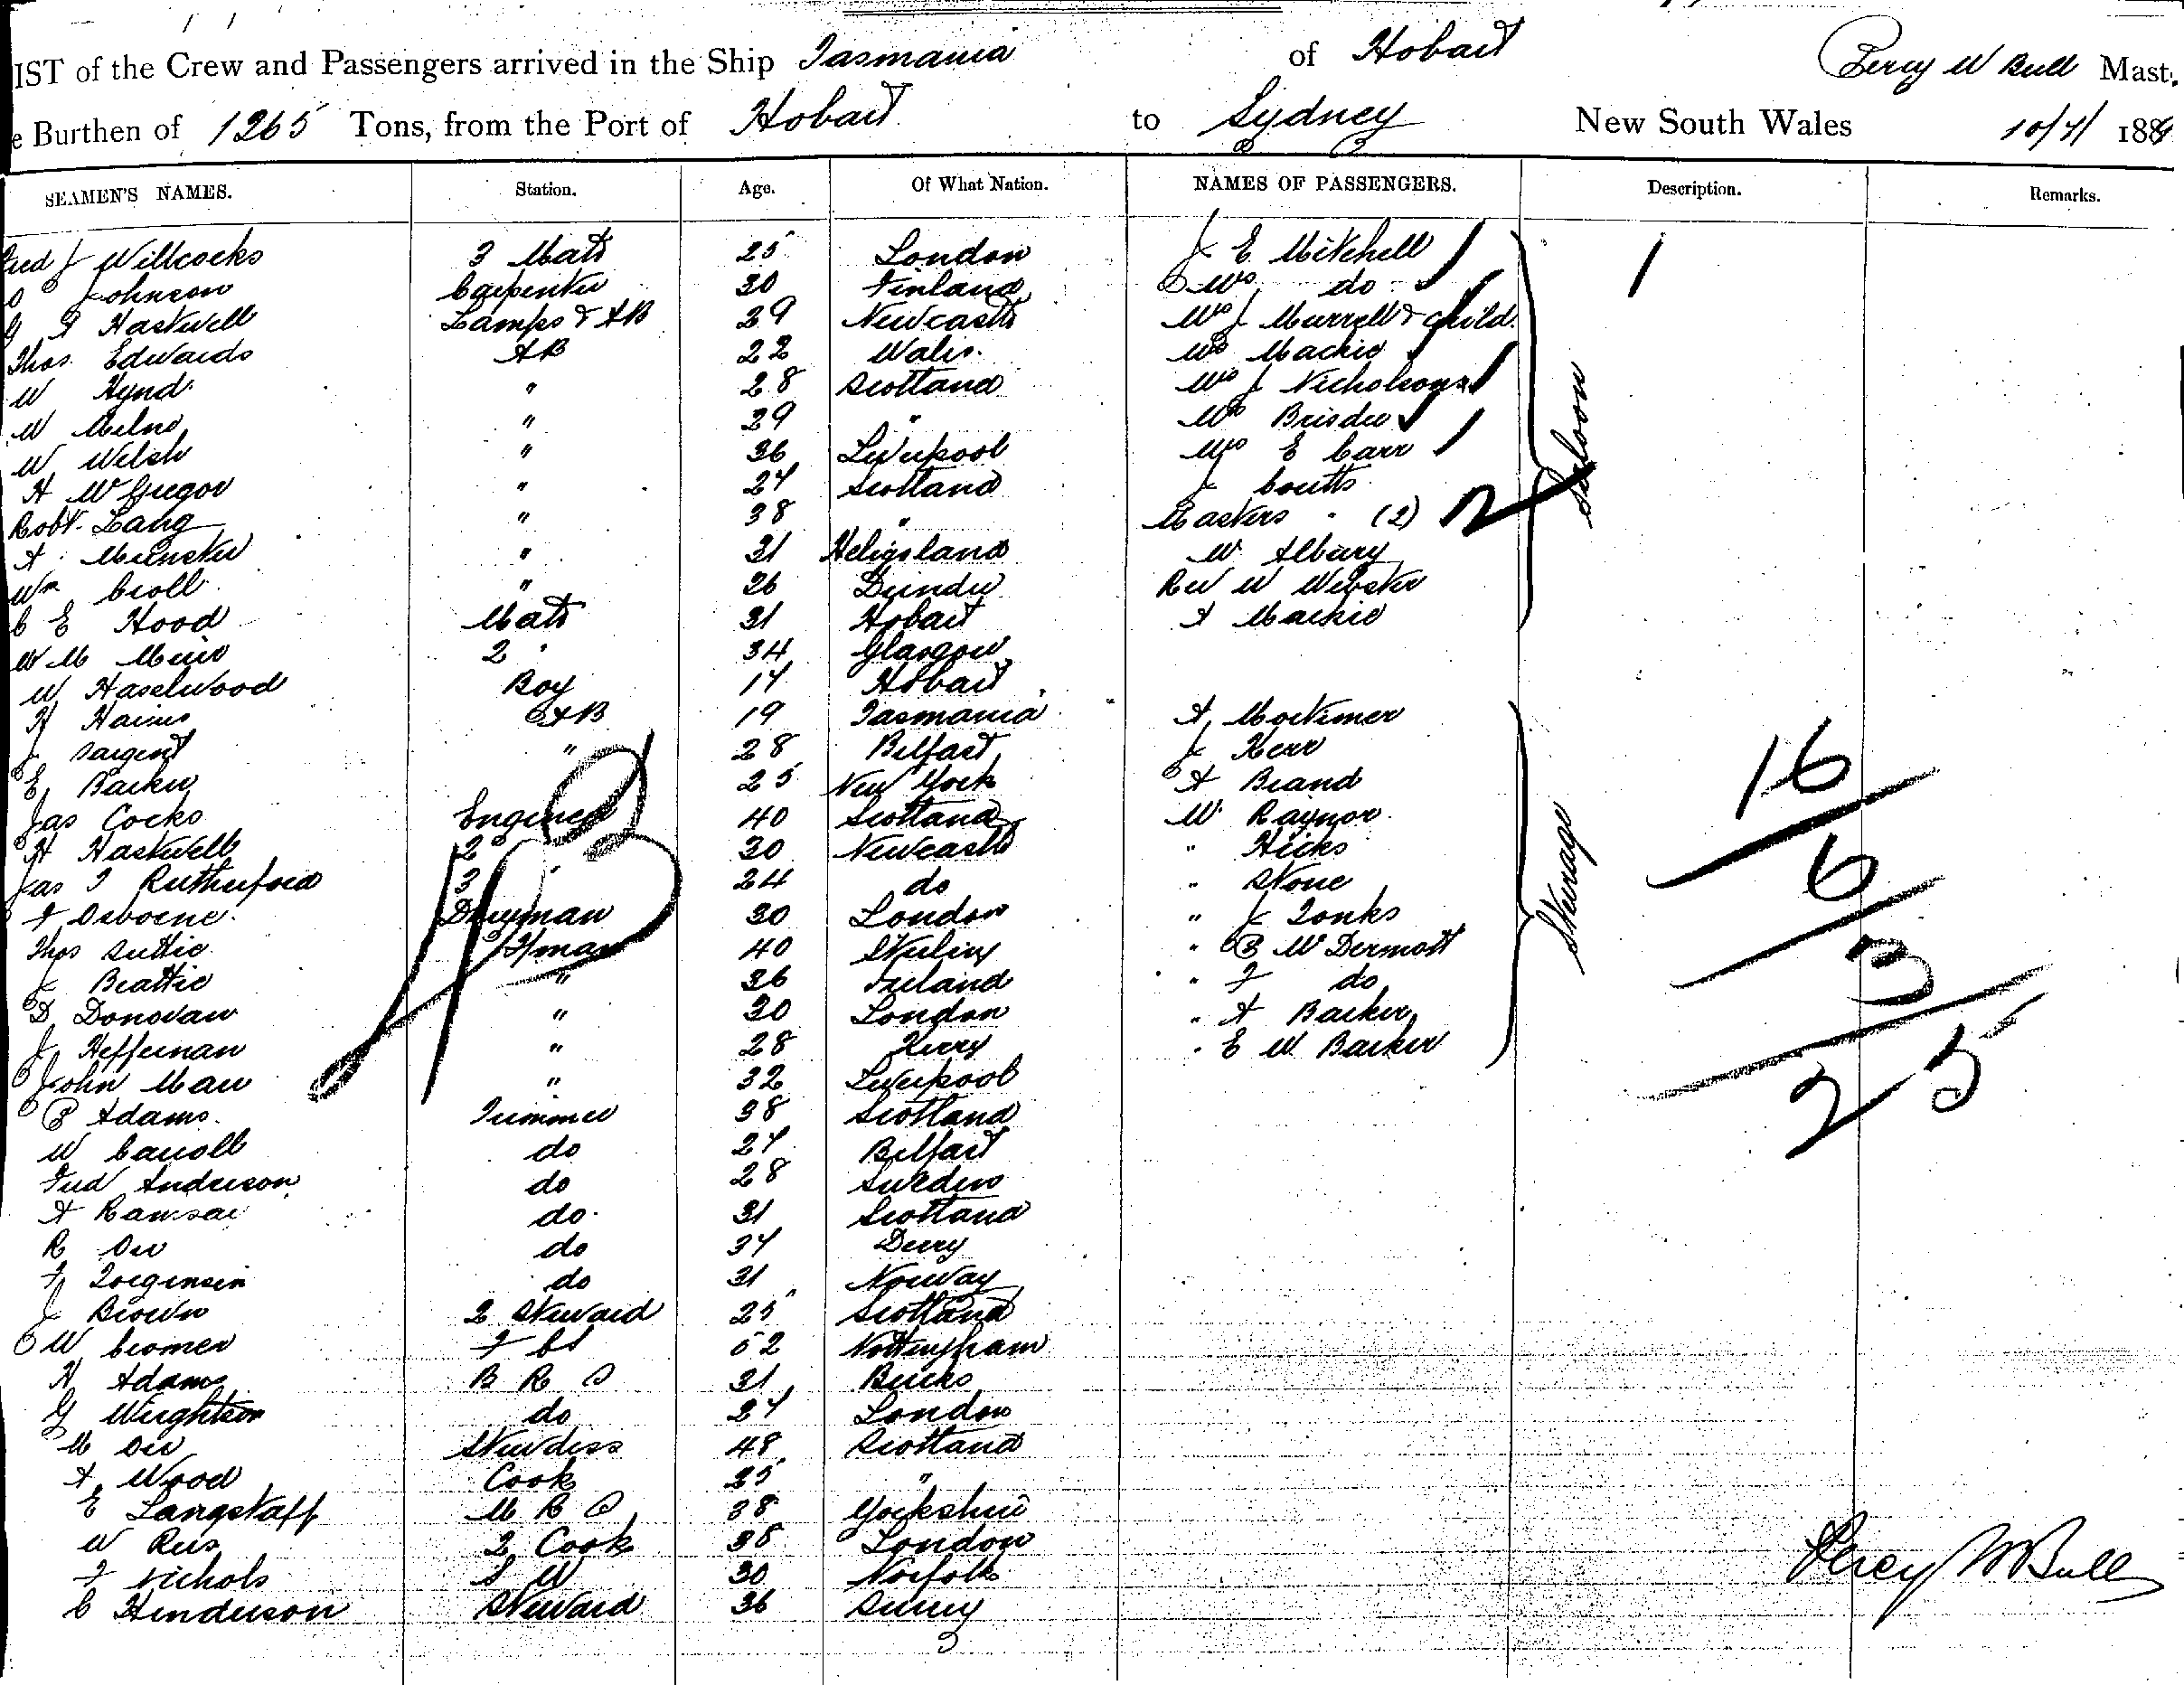 IST of the Crew and Passengers arrived in the Ship Tasmania of Hobart Percy W Bull Mast.
e Burthen of 1265 Tons, from the Port of Hobart to Sydney New South Wales 10/4/ 188
SEAMEN'S NAMES. Station. Age. Of What Nation. NAMES OF PASSENGERS. Description. Remarks.
Fred J Willcocks 3 Mate 25 London J E Mitchell
Johnson Carpenter 30 Finland Mrs do
G A Haskwell Lamps & AB 29 Newcastle Mrs J Murrell & child
Thos. Edwards AB 22 Wales. Mrs Mackie
W Hynd " 28 Scotland Mrs J Nicholson
W Milne " 29 " Mrs Brisdee
W Welsh " 36 Liverpool Mrs E Carr
A McGregor " 24 Scotland J Coutts
Robt. Lang " 38 " Masters (2)
A Munster " 31 Heligoland W Albury
Wm Croll " 26 Dundee Rev W Webster
C E Hood Mate 31 Hobart A Mackie
W M Muir 2 " 34 Glasgow
W Haselwood Boy 17 Hobart
H Haines AB 19 Tasmania A Mortimer
J Sargent " 28 Belfast J Kerr
E Barker 25 New York A Brand
Jas Cocks Engineer 40 Scotland W Raynor
H Haskwell 2 30 Newcastle " Hicks
Jas T Rutherford 3 " 24 do " Stone
F Osborne Dkeyman 30 London " J Tonks
Thos Suttie Fman 40 Stirling " B McDermott
J Beattie " 36 Ireland " F do
D Donovan " 30 London " A Barker
J Heffernan " 28 Kerry " E W Barker
John Maw " 32 Liverpool
B Adams Trimmer 38 Scotland
W Carroll do 27 Belfast
Fred Anderson do 28 Sweden
A Ramsai do 31 Scotland
R Orr do 34 Derry
F Jorgensein do 31 Norway
J Brown 2 Steward 25 Scotland
W Cromer F Cs 52 Nottingham
H Adams B R S 31 Bucks
G Wrightson do 24 London
M Orr Stewdess 48 Scotland
A Wood Cook 25 "
E Langstaff M R S 38 Yorkshire
W Rees 2 Cook 38 London
F Nichols S W 30 Norfolk
C Henderson Steward 36 Surrey
Saloon
Steerage
16
6
3
25
Percy W Bull